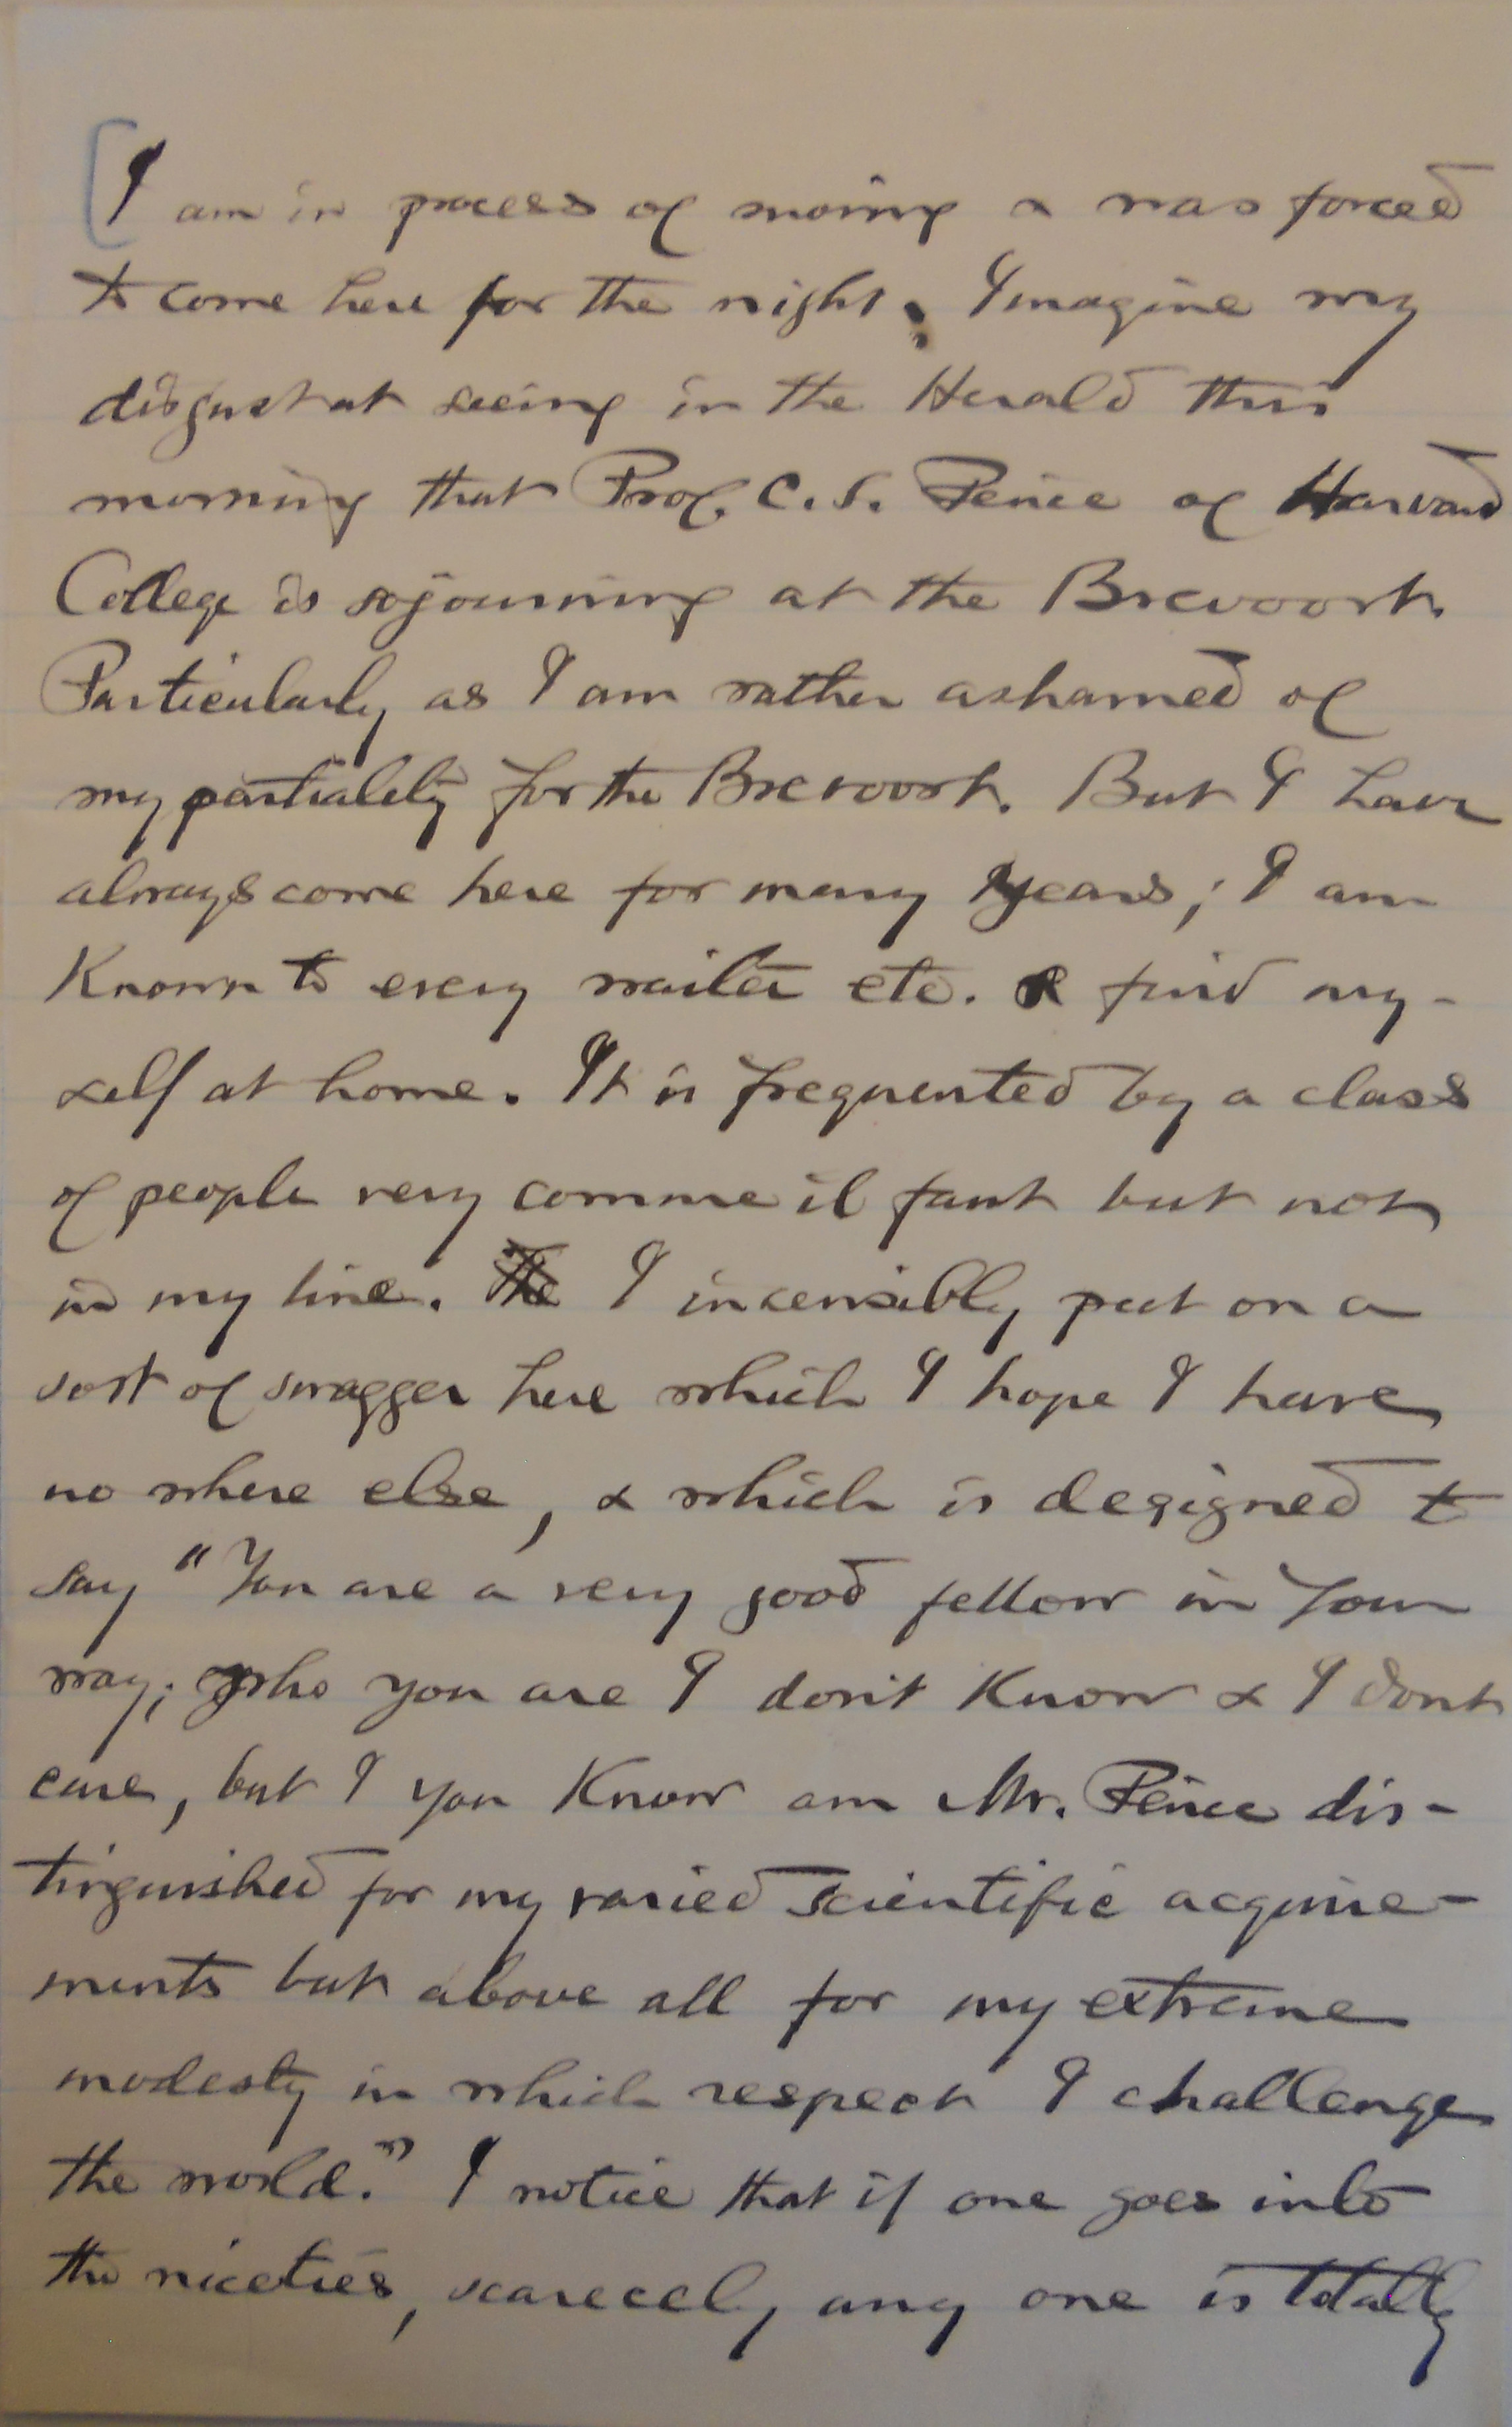 [I am in process of moving & was forced
to come here for the night. Imagine my
disgust at seeing in the Herald this
morning that Prof. C. S. Peirce of Harvard
College is sojourning at the Brevoort.
Particularly as I am rather ashamed of
my partiality for the Brevoort. But I have
always come here for many years; I am
Known to every waiter etc. & find my-
self at home. It is frequented by a class
of people very comme il faut but not
in my line. The I incensibly put on a
sort of swagger here which I hope I have
no where else, & which is designed to
say "You are a very good fellow in your
way; who you are I don't Know & I dont
care, but I you Know am Mr. Peirce dis-
tinguished for my varied scientific acquire-
ments but above all for my extreme
modesty in which respect I challenge
the world." I notice that if one goes into
the niceties, scarecely any one is totally